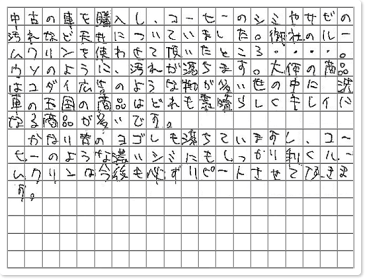 中古の車を購入し、コーヒーのシミやヤゼの
汚れなど天井についていました。御社のルー
ムクリンを使わせて頂いたところ・・・・。
ウソのように、汚れが落ちます。大体の商品
はコダイ広告のような物が多い世の中に、洗
車の王国の商品はどれも素晴らしくキレイに
なる商品が多いです。
かなり昔のヨゴレも落ちていますし、コー
ヒーのような濃いシミにもしっかり利くルー
ムクリンは今後も必ずリピートさせて頂きま
す。